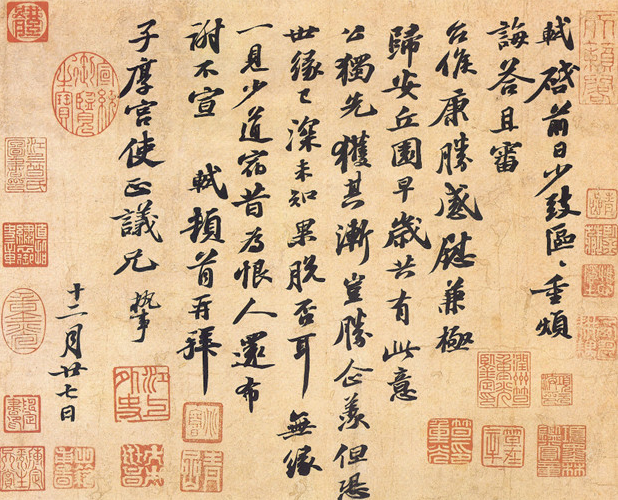 軾啓前日少致區〻重煩
誨荅且審
台候康勝感慰兼極
歸安丘園早歲共有此意
公獨先獲其漸豈勝企羨但恐
世緣已深未知果脫否耳 無緣
一見少道宿昔為恨人還布
謝不宣 軾頓首再拜
子厚宮使正議兄 執事
十二月廿七日
宣統御覽之寶